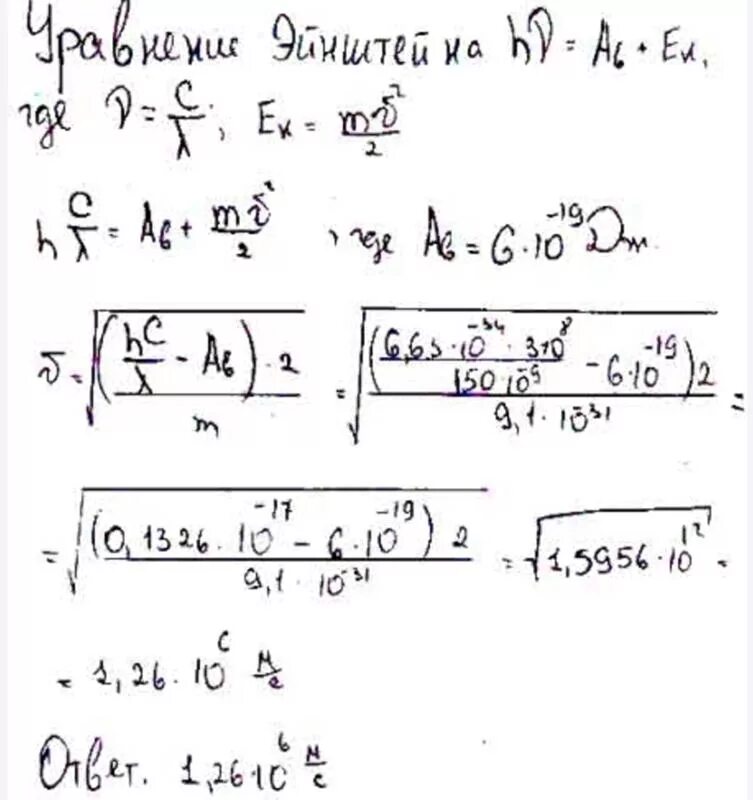 Уравнение Эйнштейна hν = Aв + Eк,
где ν = c/λ; Eк = mv²/2
h c/λ = Aв + mv²/2, где Aв = 6·10⁻¹⁹ Дж.
v = √((hc/λ - Aв)·2/m) = √((6,63·10⁻³⁴·3·10⁸/150·10⁻⁹ - 6·10⁻¹⁹)2/9,1·10⁻³¹) =
= √((0,1326·10⁻¹⁷ - 6·10⁻¹⁹)2/9,1·10⁻³¹) = √(1,5956·10¹²) =
= 1,26·10⁶ м/с
Ответ. 1,26·10⁶ м/с